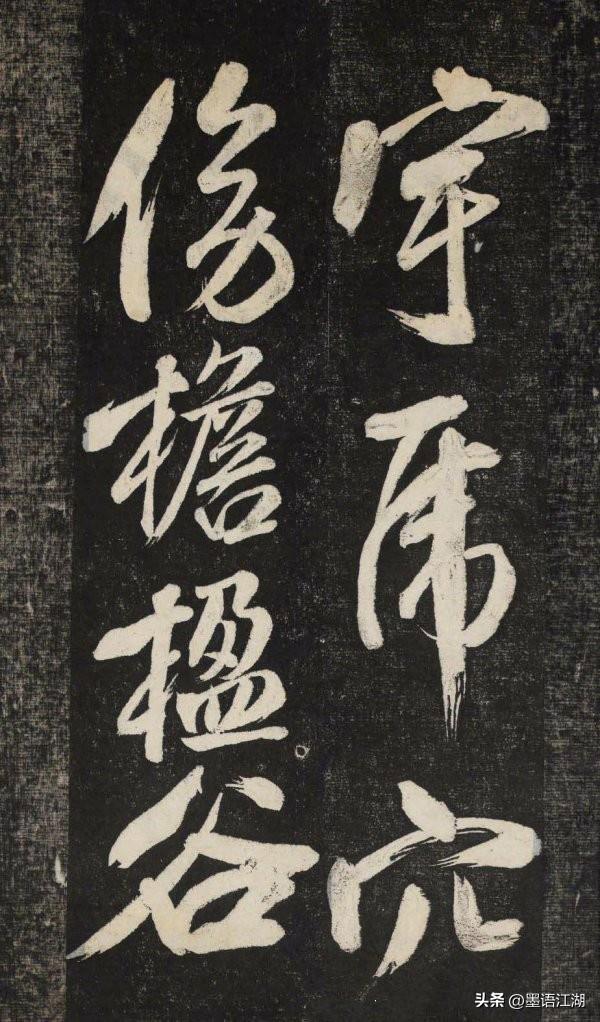 宇虎穴
傍檐楹谷
头条 @墨语江湖